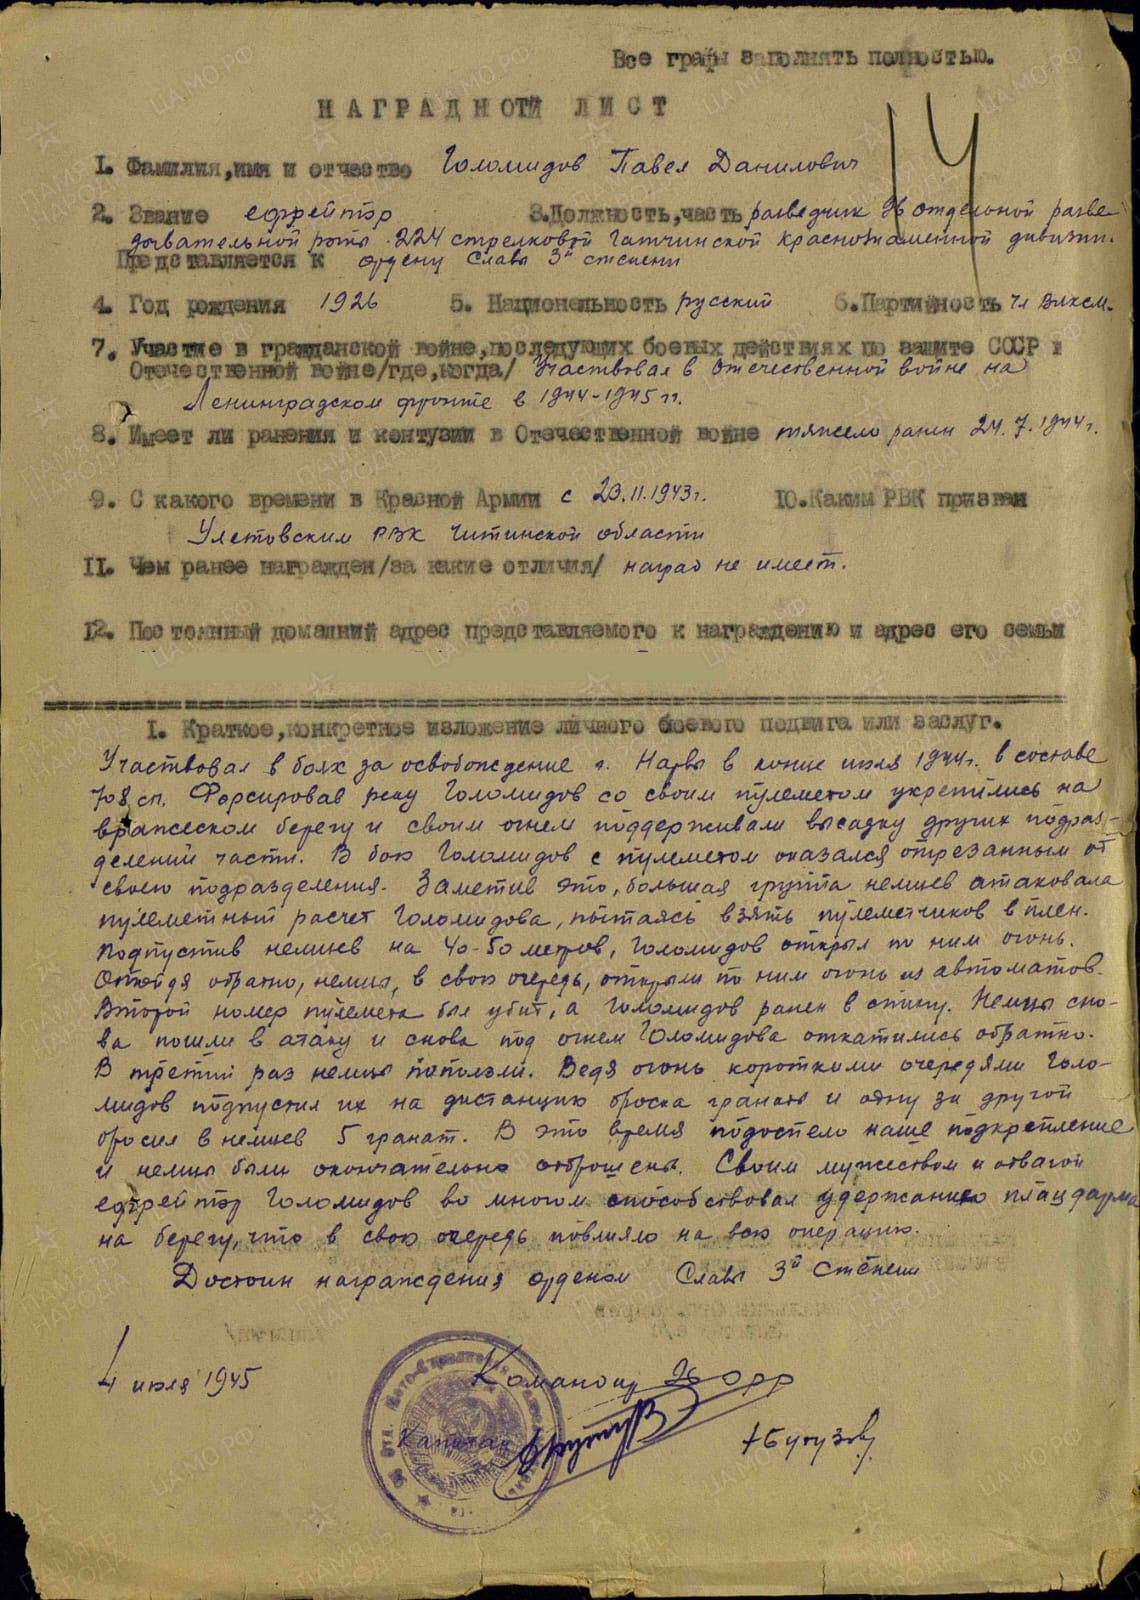 Все графы заполнять полностью.
НАГРАДНОЙ ЛИСТ
14
1. Фамилия, имя и отчество Голомидов Павел Данилович
2. Звание ефрейтор 3. Должность, часть разведчик 36 отдельной разве-
дывательной роты 224 стрелковой Гатчинской Краснознаменной дивизии.
Представляется к ордену Славы 3й степени
4. Год рождения 1926 5. Национельность русский 6. Партийность чл ВЛКСМ.
7. Участие в гражданской войне, последующих боевых действиях по защите СССР и
Отечественной войне /где, когда/ Участвовал в Отечественной войне на
Ленинградском фронте в 1944-1945 гг.
8. Имеет ли ранения и контузии в Отечественной войне тяжело ранен 24.7.1944г.
9. С какого времени в Красной Армии с 23.11.1943г. 10. Каким РВК призван
Улетовским РВК Читинской области
11. Чем ранее награжден /за какие отличия/ наград не имеет.
12. Постоянный домашний адрес представляемого к награждению и адрес его семьи
I. Краткое, конкретное изложение личного боевого подвига или заслуг.
Участвовал в боях за освобождение г. Нарвы в конце июля 1944г. в составе
708 сп. Форсировав реку Голомидов со своим пулеметом укрепились на
вражеском берегу и своим огнем поддерживали высадку других подраз-
делений части. В бою Голомидов с пулеметом оказался отрезанным от
своего подразделения. Заметив это, большая группа немцев атаковала
пулеметный расчет Голомидова, пытаясь взять пулеметчиков в плен.
Подпустив немцев на 40-50 метров, Голомидов открыл по ним огонь.
Отойдя обратно, немцы, в свою очередь, открыли по ним огонь из автоматов.
Второй номер пулемета был убит, а Голомидов ранен в спину. Немцы сно-
ва пошли в атаку и снова под огнем Голомидова откатились обратно.
В третий раз немцы поползли. Ведя огонь короткими очередями Голо-
мидов подпустил их на дистанцию броска гранаты и одну за другой
бросил в немцев 5 гранат. В это время подоспело наше подкрепление
и немцы были окончательно отброшены. Своим мужеством и отвагой
ефрейтор Голомидов во многом способствовал удержанию плацдарма
на берегу, что в свою очередь повлияло на всю операцию.
Достоин награждения орденом Славы 3й степени
4 июля 1945 Командир 36 ОРР
Капитан /Бутузов/